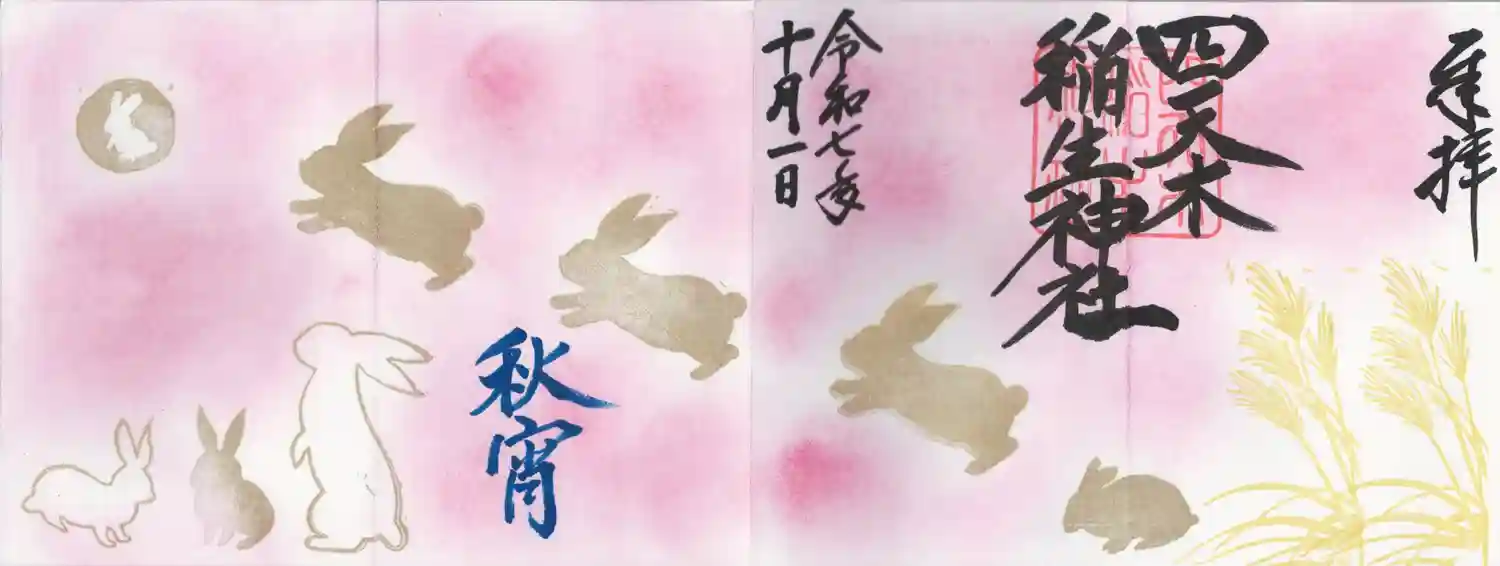 奉拝
四天木
稲生神社
令和七年
十月一日
秋宵